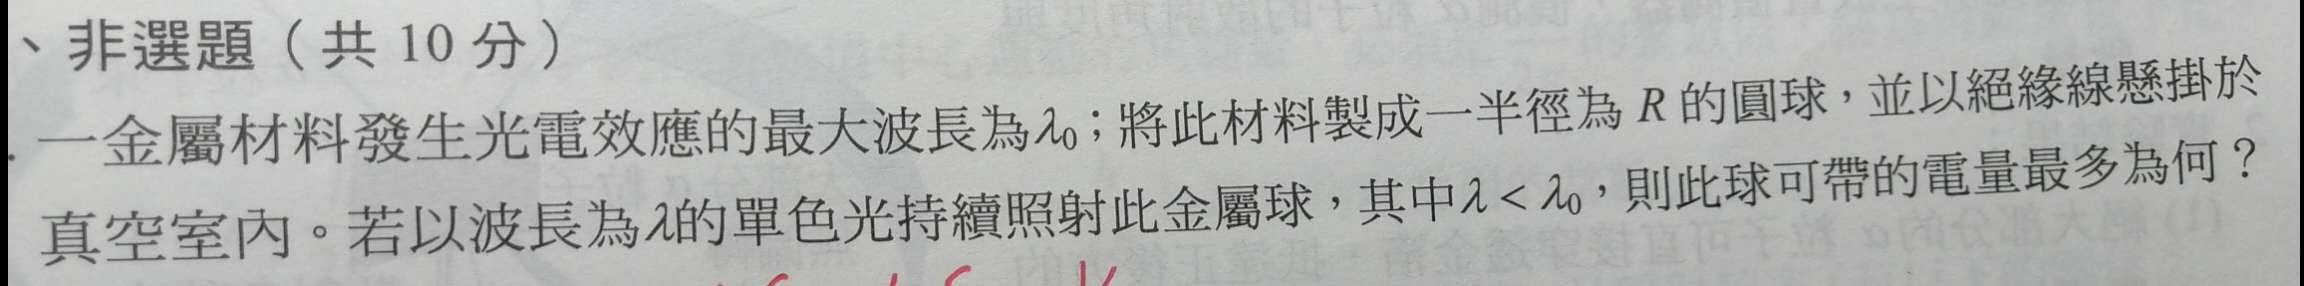 、非選題（共 10 分）
. 一金屬材料發生光電效應的最大波長為λ₀；將此材料製成一半徑為 R 的圓球，並以絕緣線懸掛於
真空室內。若以波長為λ的單色光持續照射此金屬球，其中λ < λ₀，則此球可帶的電量最多為何？